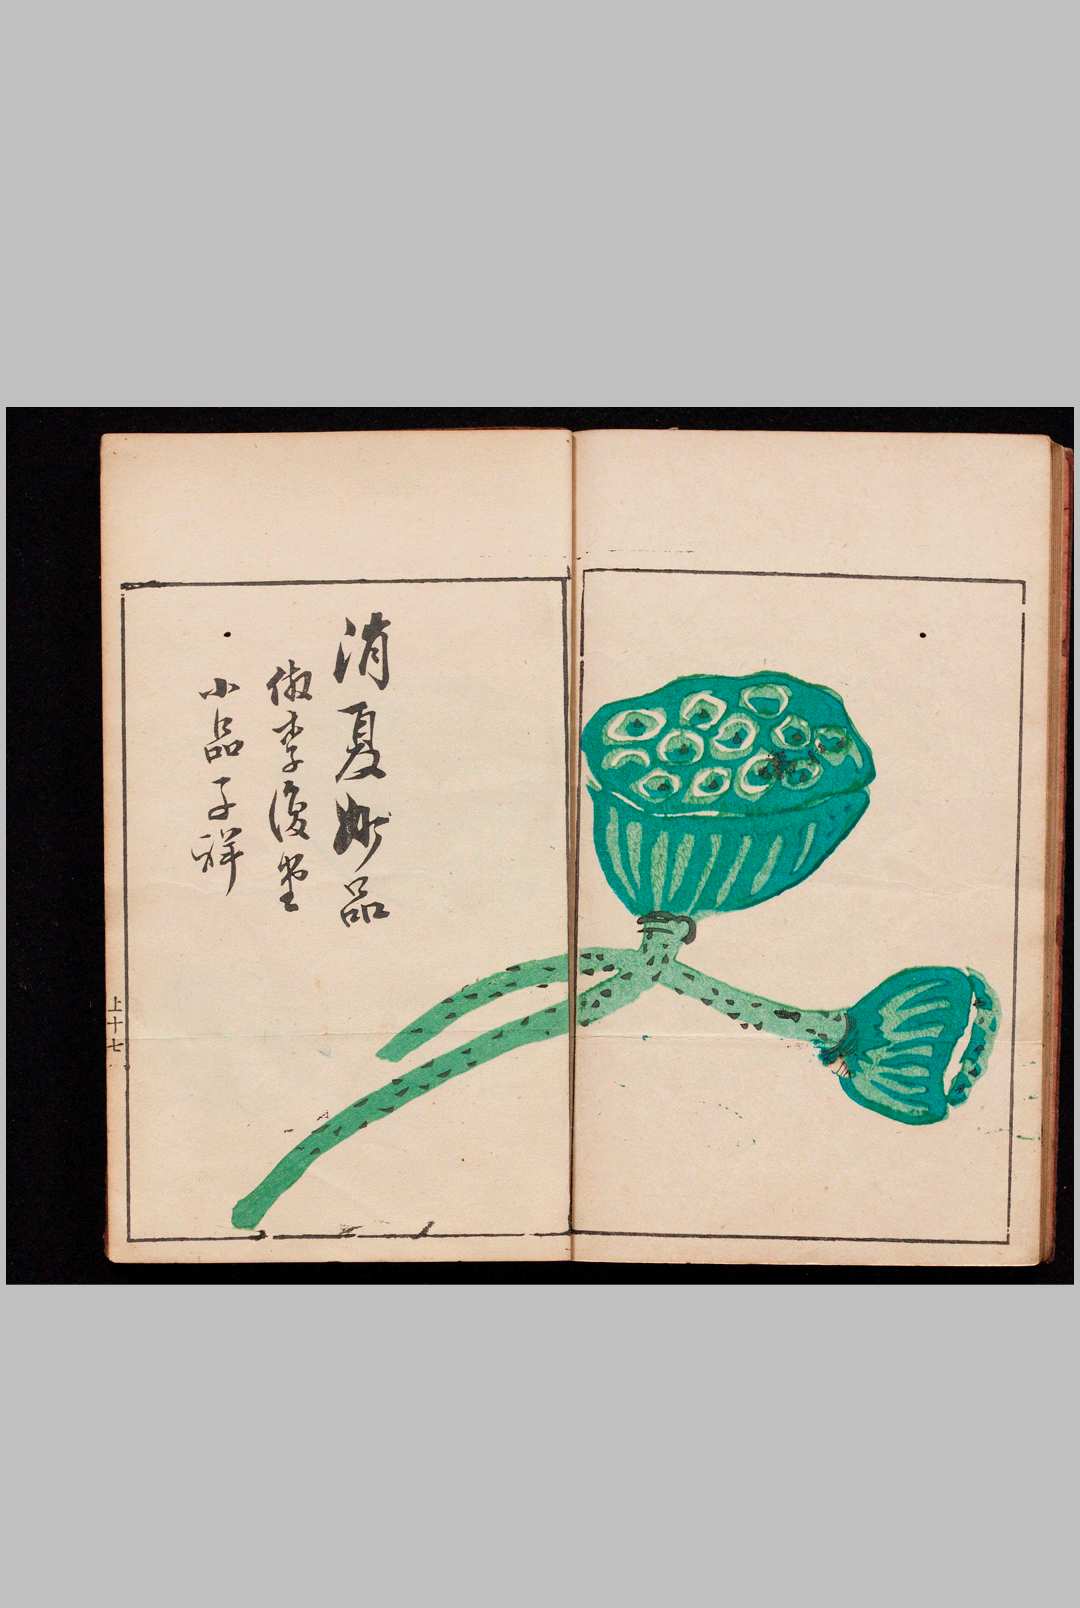 消夏妙品
倣李復堂
小品子祥
上十七